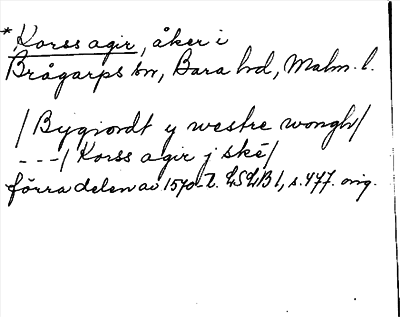 *Korss agir, åker i
Brågarps sn, Bara hd, Malm. l.
/ Bygiordt y westre wongh/
---/ Korss agir j ske/
förra delen av 1570-t. LSLB 1, s. 477. orig.